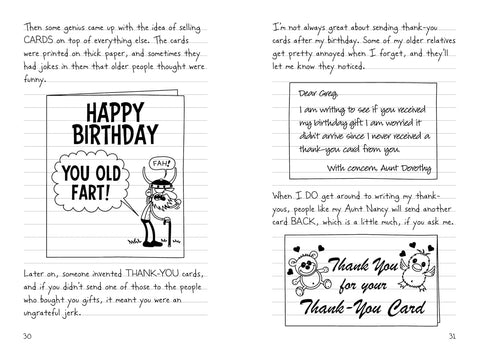 Then some genius came up with the idea of selling
CARDS on top of everything else. The cards
were printed on thick paper, and sometimes they
had jokes in them that older people thought were
funny.
HAPPY
BIRTHDAY
YOU OLD
FART!
FAH!
Later on, someone invented THANK-YOU cards,
and if you didn't send one of those to the people
who bought you gifts, it meant you were an
ungrateful jerk.
30
I'm not always great about sending thank-you
cards after my birthday. Some of my older relatives
get pretty annoyed when I forget, and they'll
let me know they noticed.
Dear Greg,
I am writing to see if you received
my birthday gift. I am worried it
didn't arrive since I never received a
thank-you card from you.
With concern, Aunt Dorothy
When I DO get around to writing my thank-
yous, people like my Aunt Nancy will send another
card BACK, which is a little much, if you ask me.
Thank You
for your
Thank-You Card
31